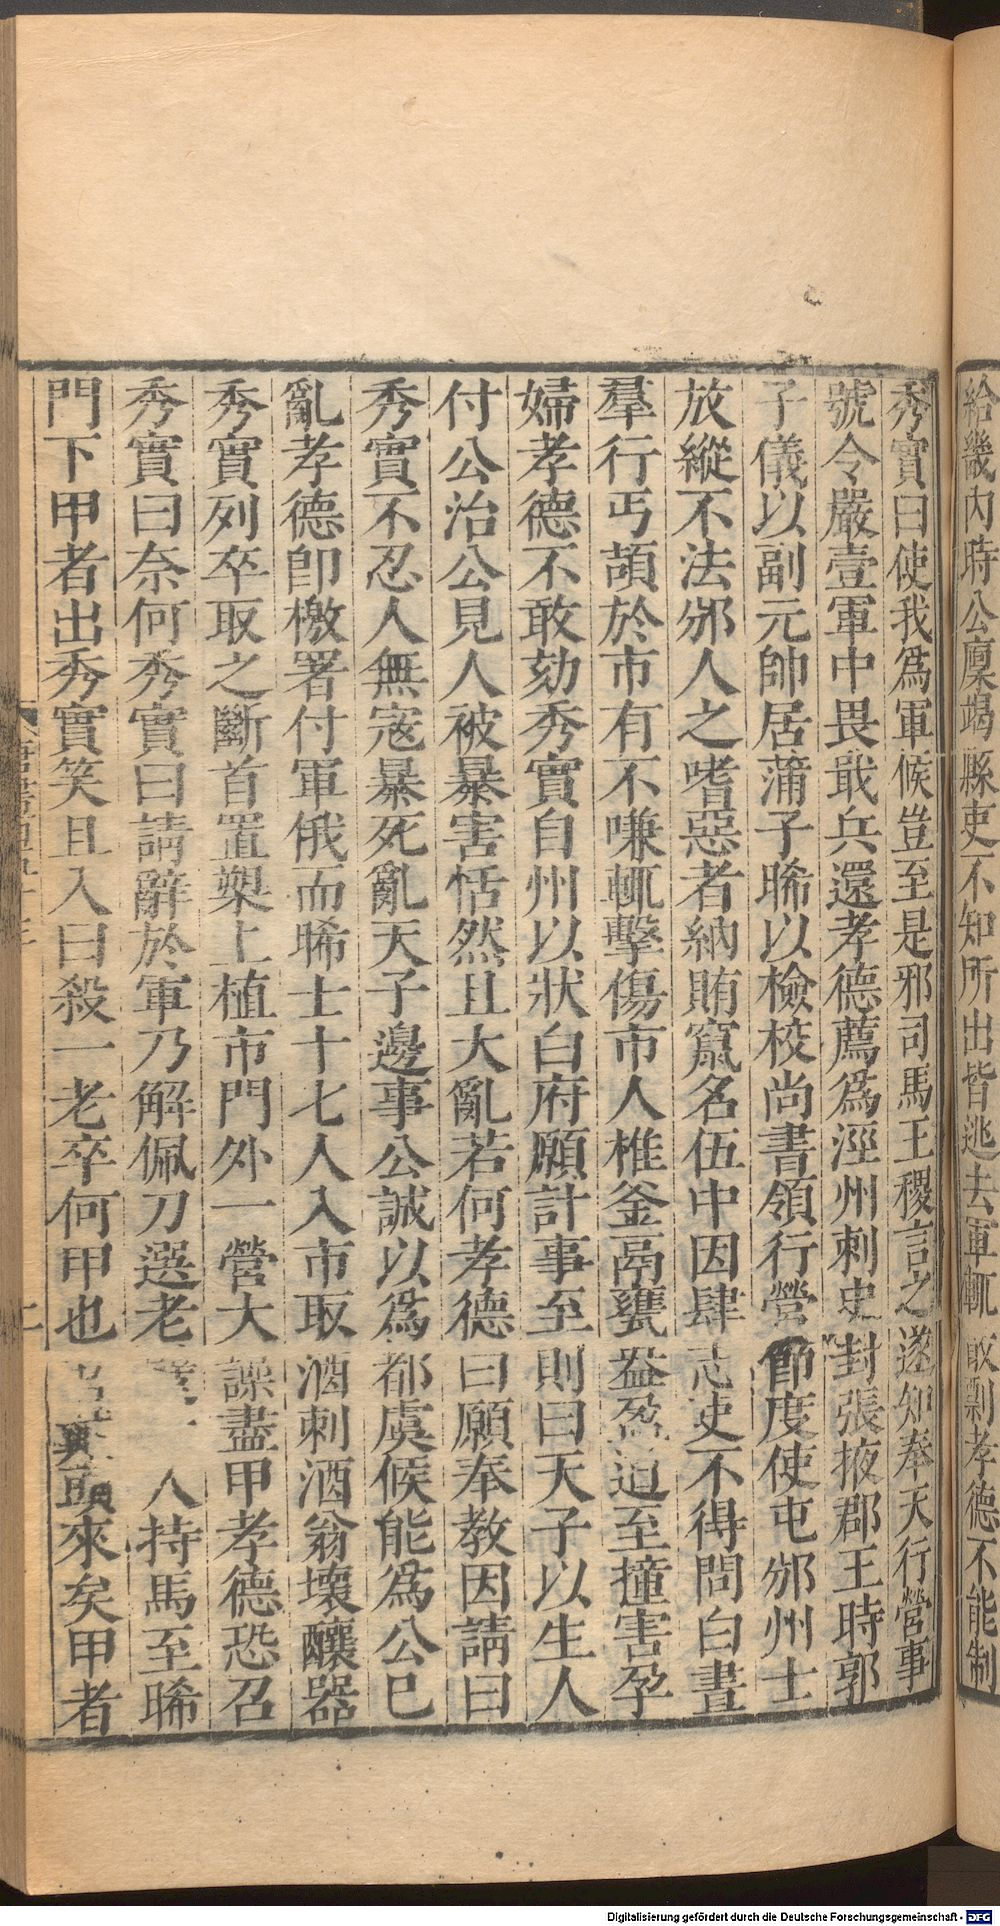 給畿内時公廩竭縣吏不知所出皆逃去軍輒散剽孝德不能制
秀實曰使我爲軍候豈至是邪司馬王稷言之遂知奉天行營事
號令嚴壹軍中畏戢兵還孝德薦爲涇州刺史封張掖郡王時郭
子儀以副元帥居蒲子晞以檢校尚書領行營節度使屯邠州士
放縱不法邠人之嗜惡者納賄竄名伍中因肆志吏不得問白晝
羣行丐頡於市有不嗛輒擊傷市人椎釜鬲甕盎盈道至撞害孕
婦孝德不敢劾秀實自州以狀白府願計事至則曰天子以生人
付公治公見人被暴害恬然且大亂若何孝德曰願奉教因請曰
秀實不忍人無寇暴死亂天子邊事公誠以爲都虞候能爲公已
亂孝德即檄署付軍俄而晞士十七人入市取酒刺酒翁壞釀器
秀實列卒取之斷首置槊上植市門外一營大譟盡甲孝德恐召
秀實曰奈何秀實曰請辭於軍乃解佩刀選老人持馬至晞
門下甲者出秀實笑且入曰殺一老卒何甲也頭來矣甲者
Digitalisierung gefördert durch die Deutsche Forschungsgemeinschaft - DFG